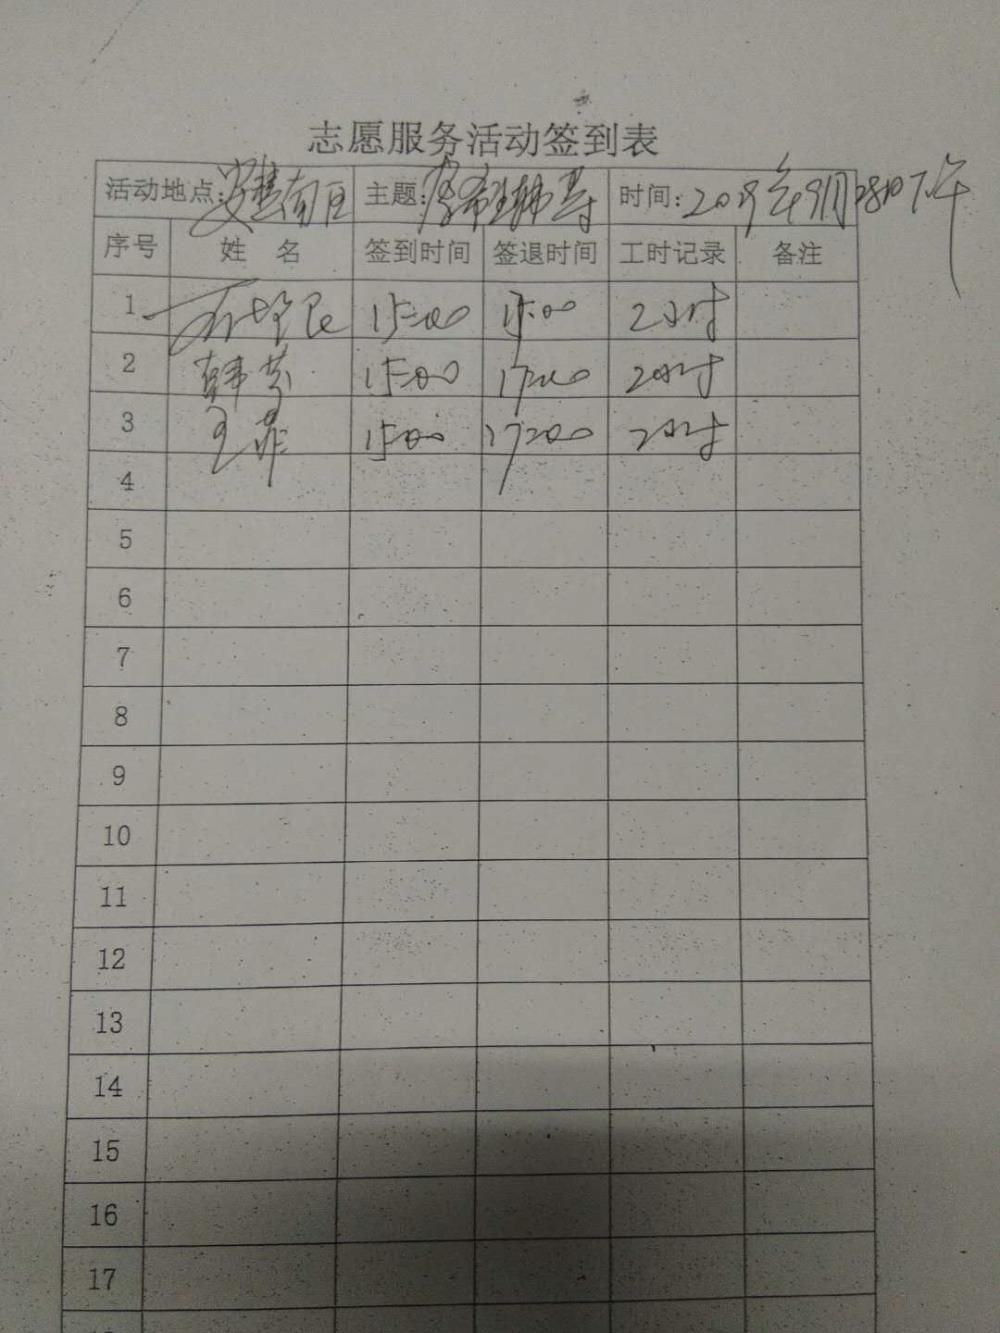 志愿服务活动签到表
活动地点:安慧南区 主题: 时间:2019年9月28日下午
序号 姓 名 签到时间 签退时间 工时记录 备注
1 15:00 17:00 2小时
2 韩芳 15:00 17:00 2小时
3 王菲 15:00 17:00 2小时
4
5
6
7
8
9
10
11
12
13
14
15
16
17